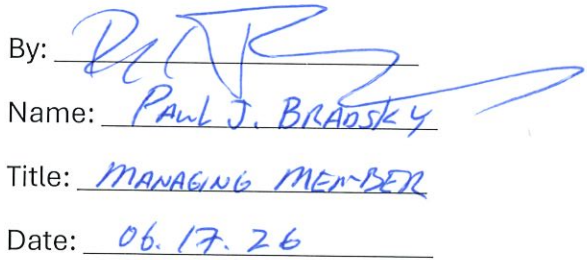 By:
Name: PAUL J. BRADSKY
Title: MANAGING MEMBER
Date: 06.17.26